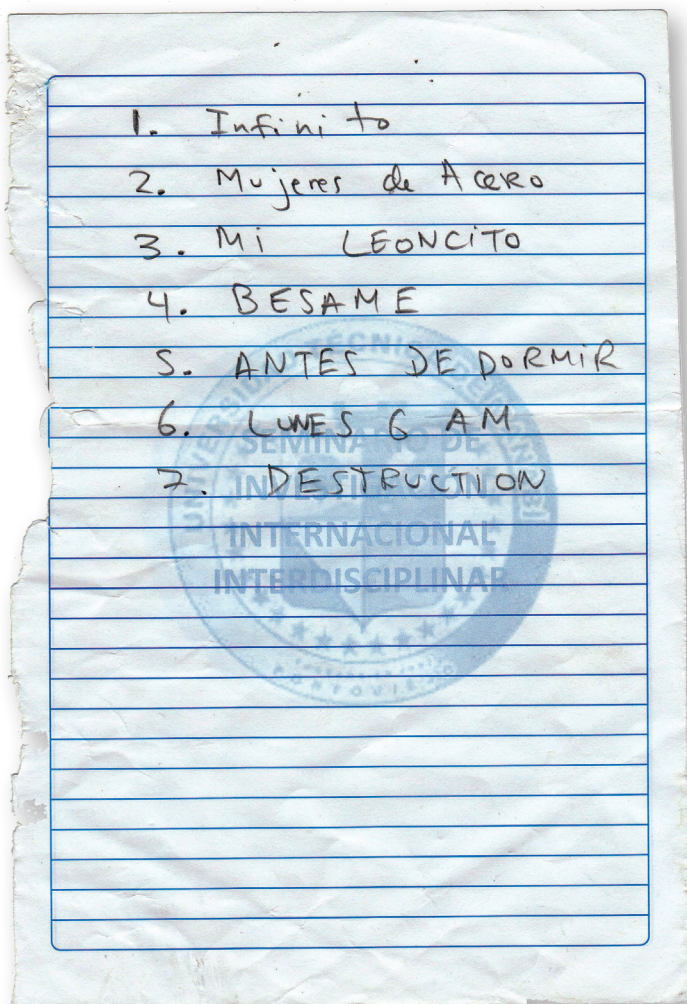 1. Infinito
2. Mujeres de Acero
3. Mi LEONCiTO
4. BESAME
5. ANTES DE DORMiR
6. LUNES 6 AM
7. DESTRUCTION
UNIVERSIDAD TÉCNICA DE MANABÍ
SEMINARIO DE
INVESTIGACIÓN
INTERNACIONAL
INTERDISCIPLINAR
PORTOVIEJO